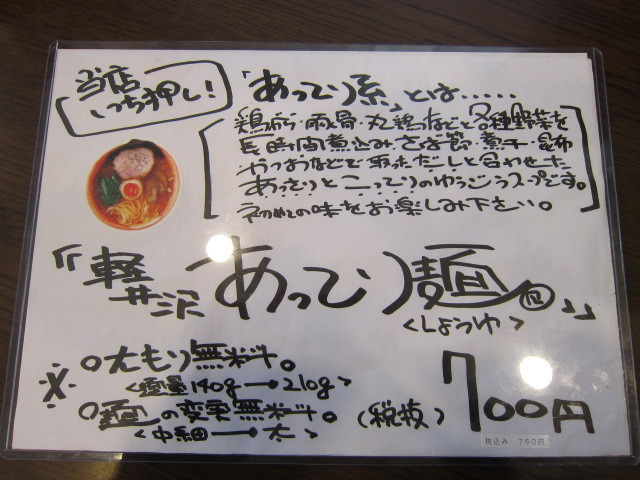 当店
いち押し!
「あってり系」とは……
鶏がら・豚骨・丸鶏などと各種野菜を
長時間煮込みさば節・煮干・昆布
かつおなどで取っただしと合わせた
あっさりとこってりのゆうごうスープです。
初めての味をお楽しみ下さい。
「軽井沢 あってり麺」
<しょうゆ>
※ ○大もり無料。
<麺量140g→210g>
○麺の変更無料。
<中細→太>
(税抜) 700円
税込み 750円